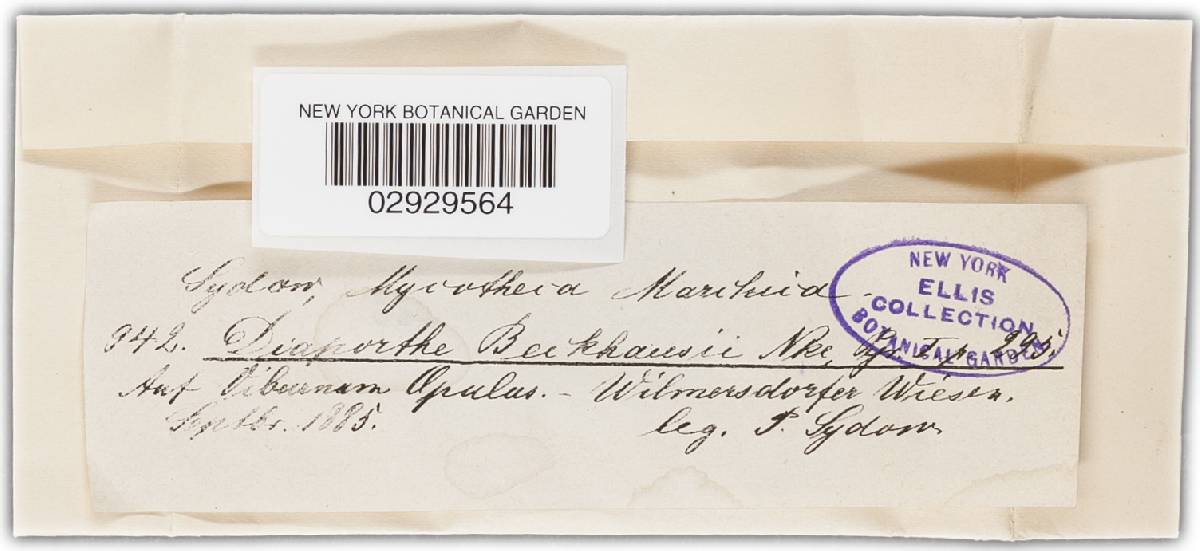 NEW YORK BOTANICAL GARDEN
02929564
Sydow, Mycotheca Marchica
NEW YORK
ELLIS
COLLECTION
BOTANICAL GARDEN
942. Diaporthe Beckhausii Nke, Pyr. I, p. 295.
Auf Viburnum Opulus. - Wilmersdorfer Wiesen.
Septbr. 1885.
leg. P. Sydow.